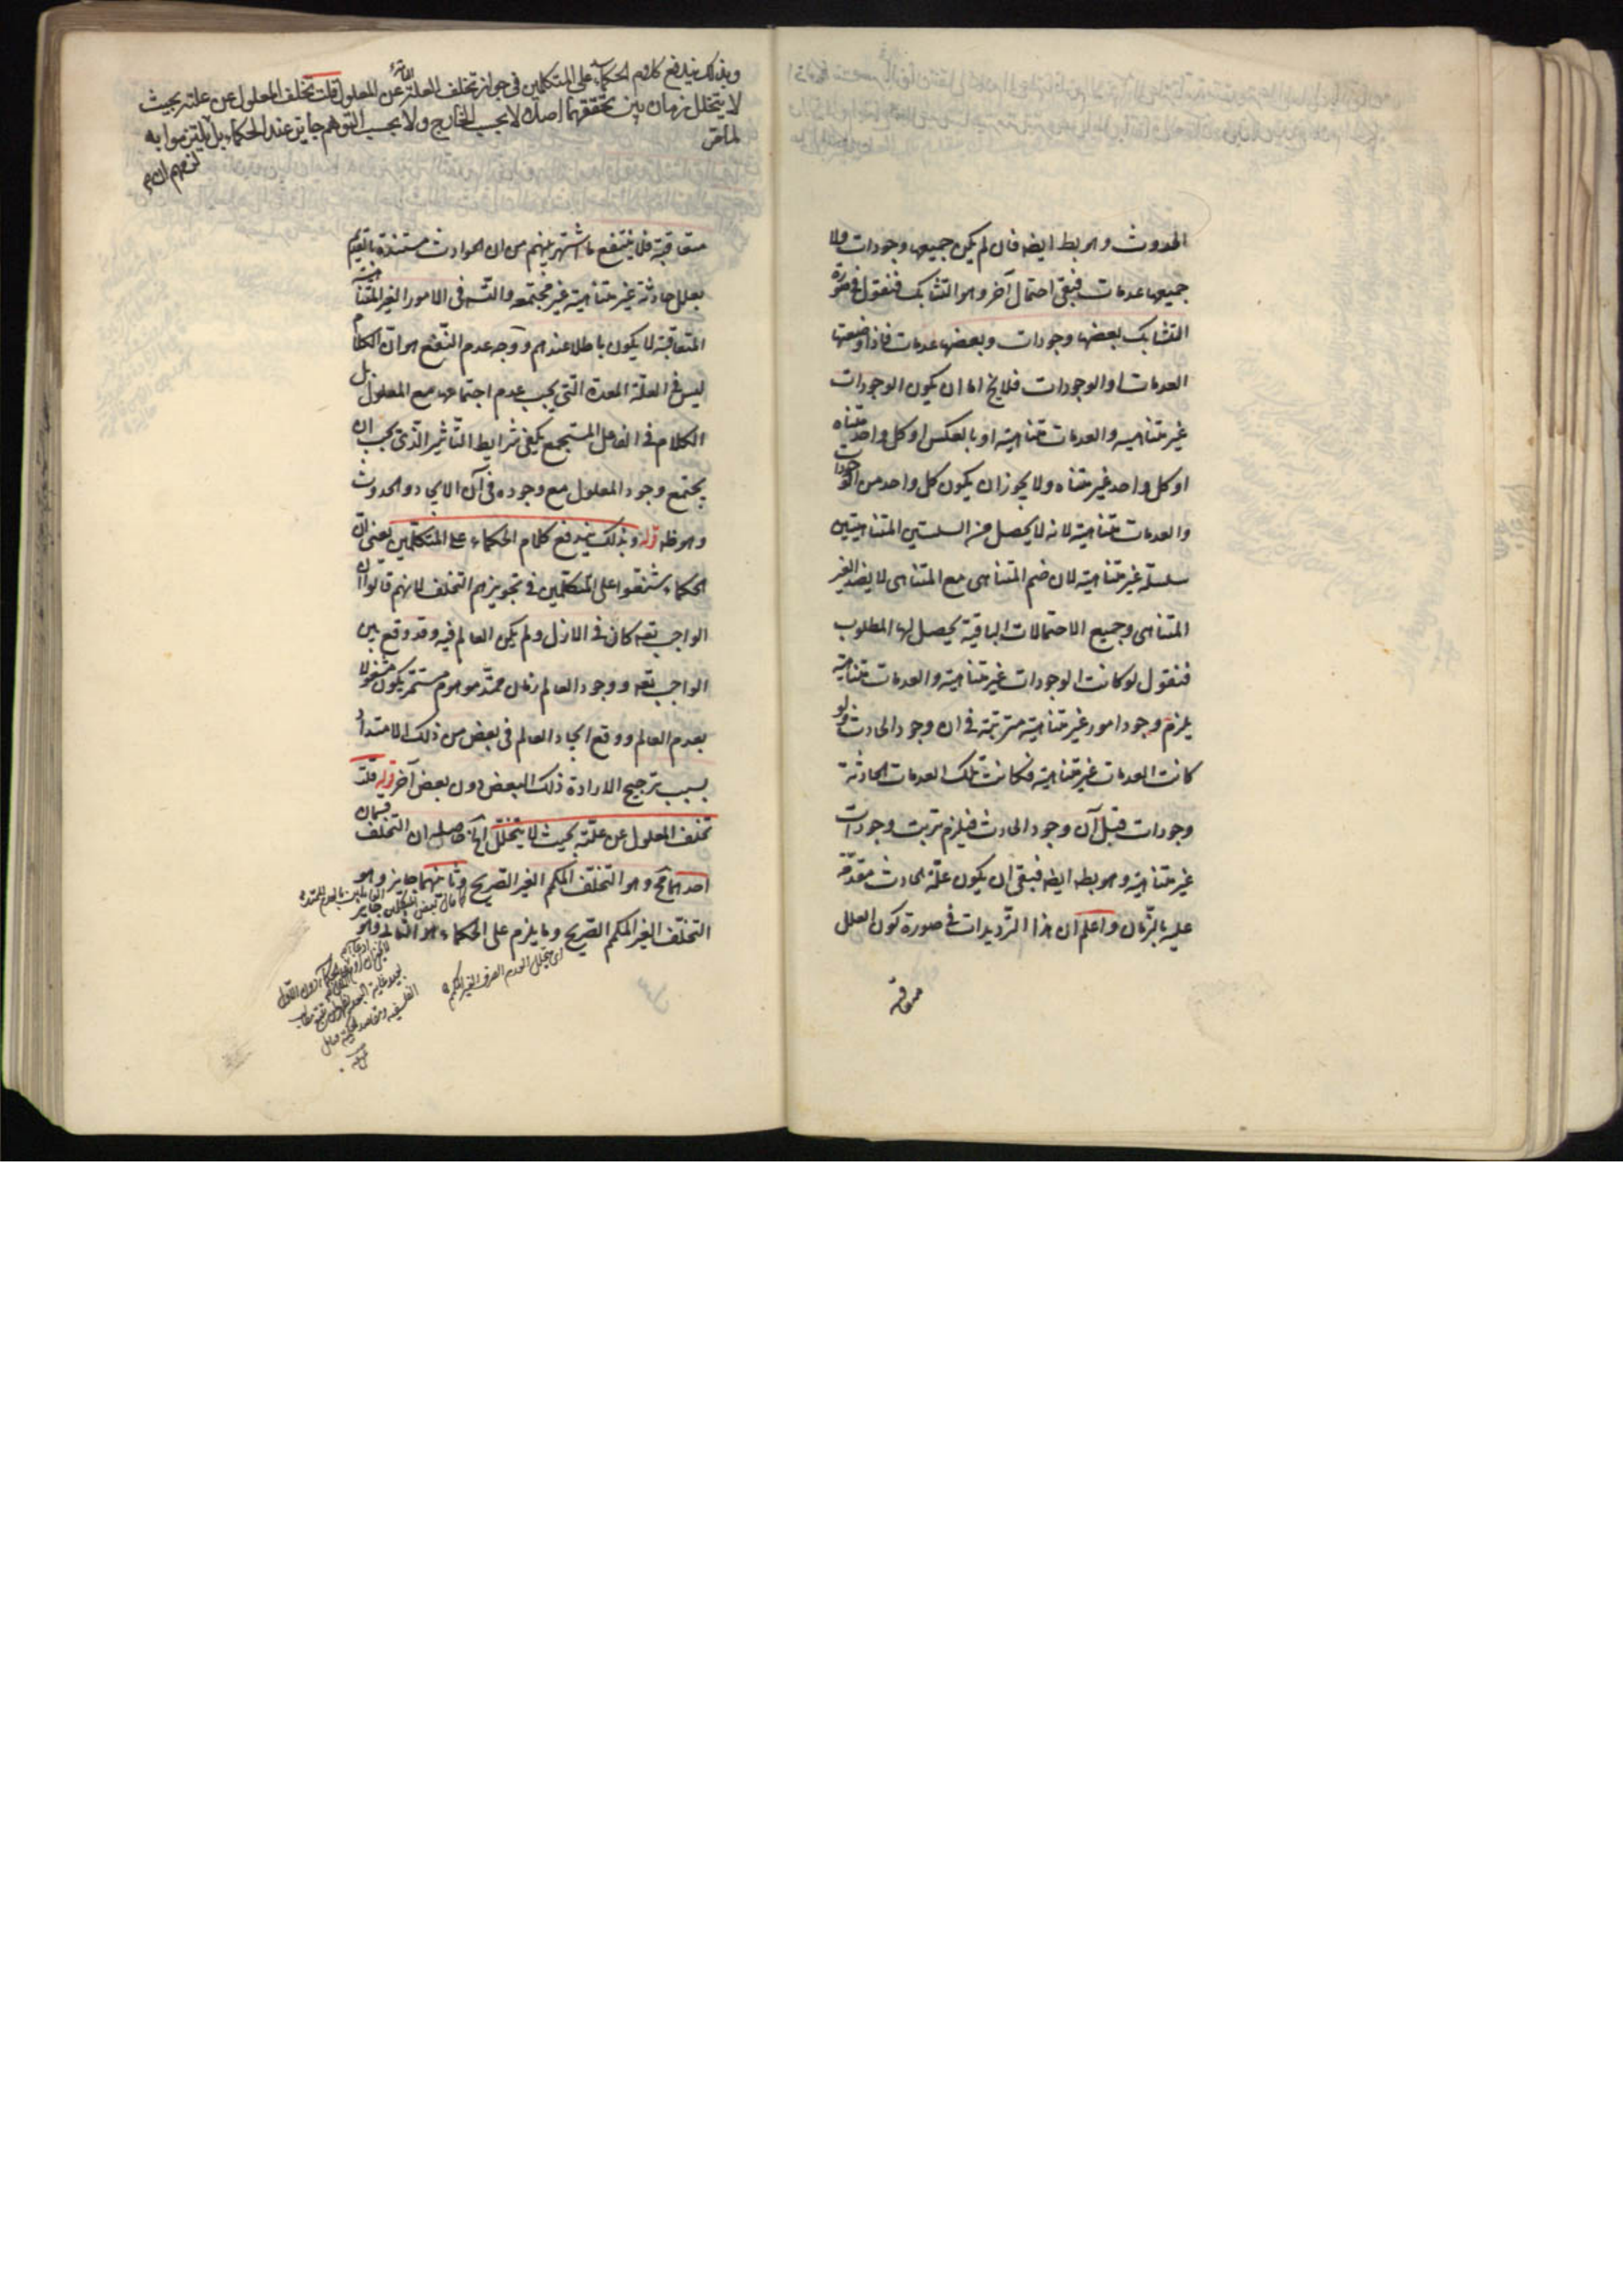 الحدوث وهو بط ايضا فان لم يكن جميعها وجودات ولا
جميعها عدمات فبقى احتمال آخر وهو التشابك فنقول فى صورة
التشابك بعضها وجودات وبعضها عدمات فاذا وضعتها
العدمات او الوجودات فلا يخ اما ان يكون الوجودات
غير متناهيه والعدمات متناهية او بالعكس او كل واحد متناه
او كل واحد غير متناه ولا يجوز ان يكون كل واحد من الوجودات
والعدمات متناهية لانه لا يحصل من السلسلتين المتناهيتين
سلسلة غير متناهية لان ضم المتناهى مع المتناهى لا يفيد الغير
المتناهى وجميع الاحتمالات الباقية يحصل لها المطلوب
فنقول لو كانت الوجودات غير متناهية والعدمات متناهية
يلزم وجود امور غير متناهية مترتبة فى ان وجود الحادث ولو
كانت العدمات غير متناهية فكانت تلك العدمات الحادثة
وجودات قبل آن وجود الحادث فيلزم ترتب وجودات
غير متناهية وهو بط ايضا فبقى ان يكون علة الحادث مقدمة
عليه بالزمان واعلم ان هذا الترديدات فى صورة كون العلل
متعاقبة
وبذلك يندفع كلام الحكماء على المتكلمين فى جواز تخلف العلة التامة عن المعلول قلت تخلف المعلول عن علته بحيث
لا يتخلل زمان بين تحققهما اصلا لا بحسب الخارج ولا بحسب التوهم جايز عند الحكماء بل التزموا به
لما مر
متعاقبة فلا ينتفع ما اشتهر بينهم من ان الحوادث مستندة بالقديم
بعلل حادثة غير متناهية غير مجتمعه والتس فى الامور الغير المتناهية
المتعاقبة لا يكون باطلا عندهم ووجه عدم النفع هو ان الكلام
ليس فى العلة المعدة التى يجب عدم اجتماعها مع المعلول بل
الكلام فى الفاعل المستجمع لجميع شرايط التاثير الذى يجب ان
يجتمع وجود المعلول مع وجوده فى آن الايجاد والحدوث
وهو ظ قوله وبذلك يندفع كلام الحكماء على المتكلمين يعنى ان
الحكماء شنعوا على المتكلمين فى تجويزهم التخلف لانهم قالوا ان
الواجب تعه كان فى الازل ولم يكن العالم فيه وقد وقع بين
الواجب تعه ووجود العالم زمان ممتد موهوم مستمر يكون مشغولا
بعدم العالم ووقع ايجاد العالم فى بعض من ذلك الامتداد
بسبب ترجيح الارادة ذلك البعض دون بعض آخر قوله قلت
تخلف المعلول عن علته بحيث لا يتخلل الخ حاصله ان التخلف قسمان
احدهما مح وهو التخلف المكمم الغير الصريح وثانيهما جايز وهو
التخلف الغير المكمم الصريح وما يلزم على الحكماء هو الثانى وهو
اى تخلل العدم الصرف الغير المكمم